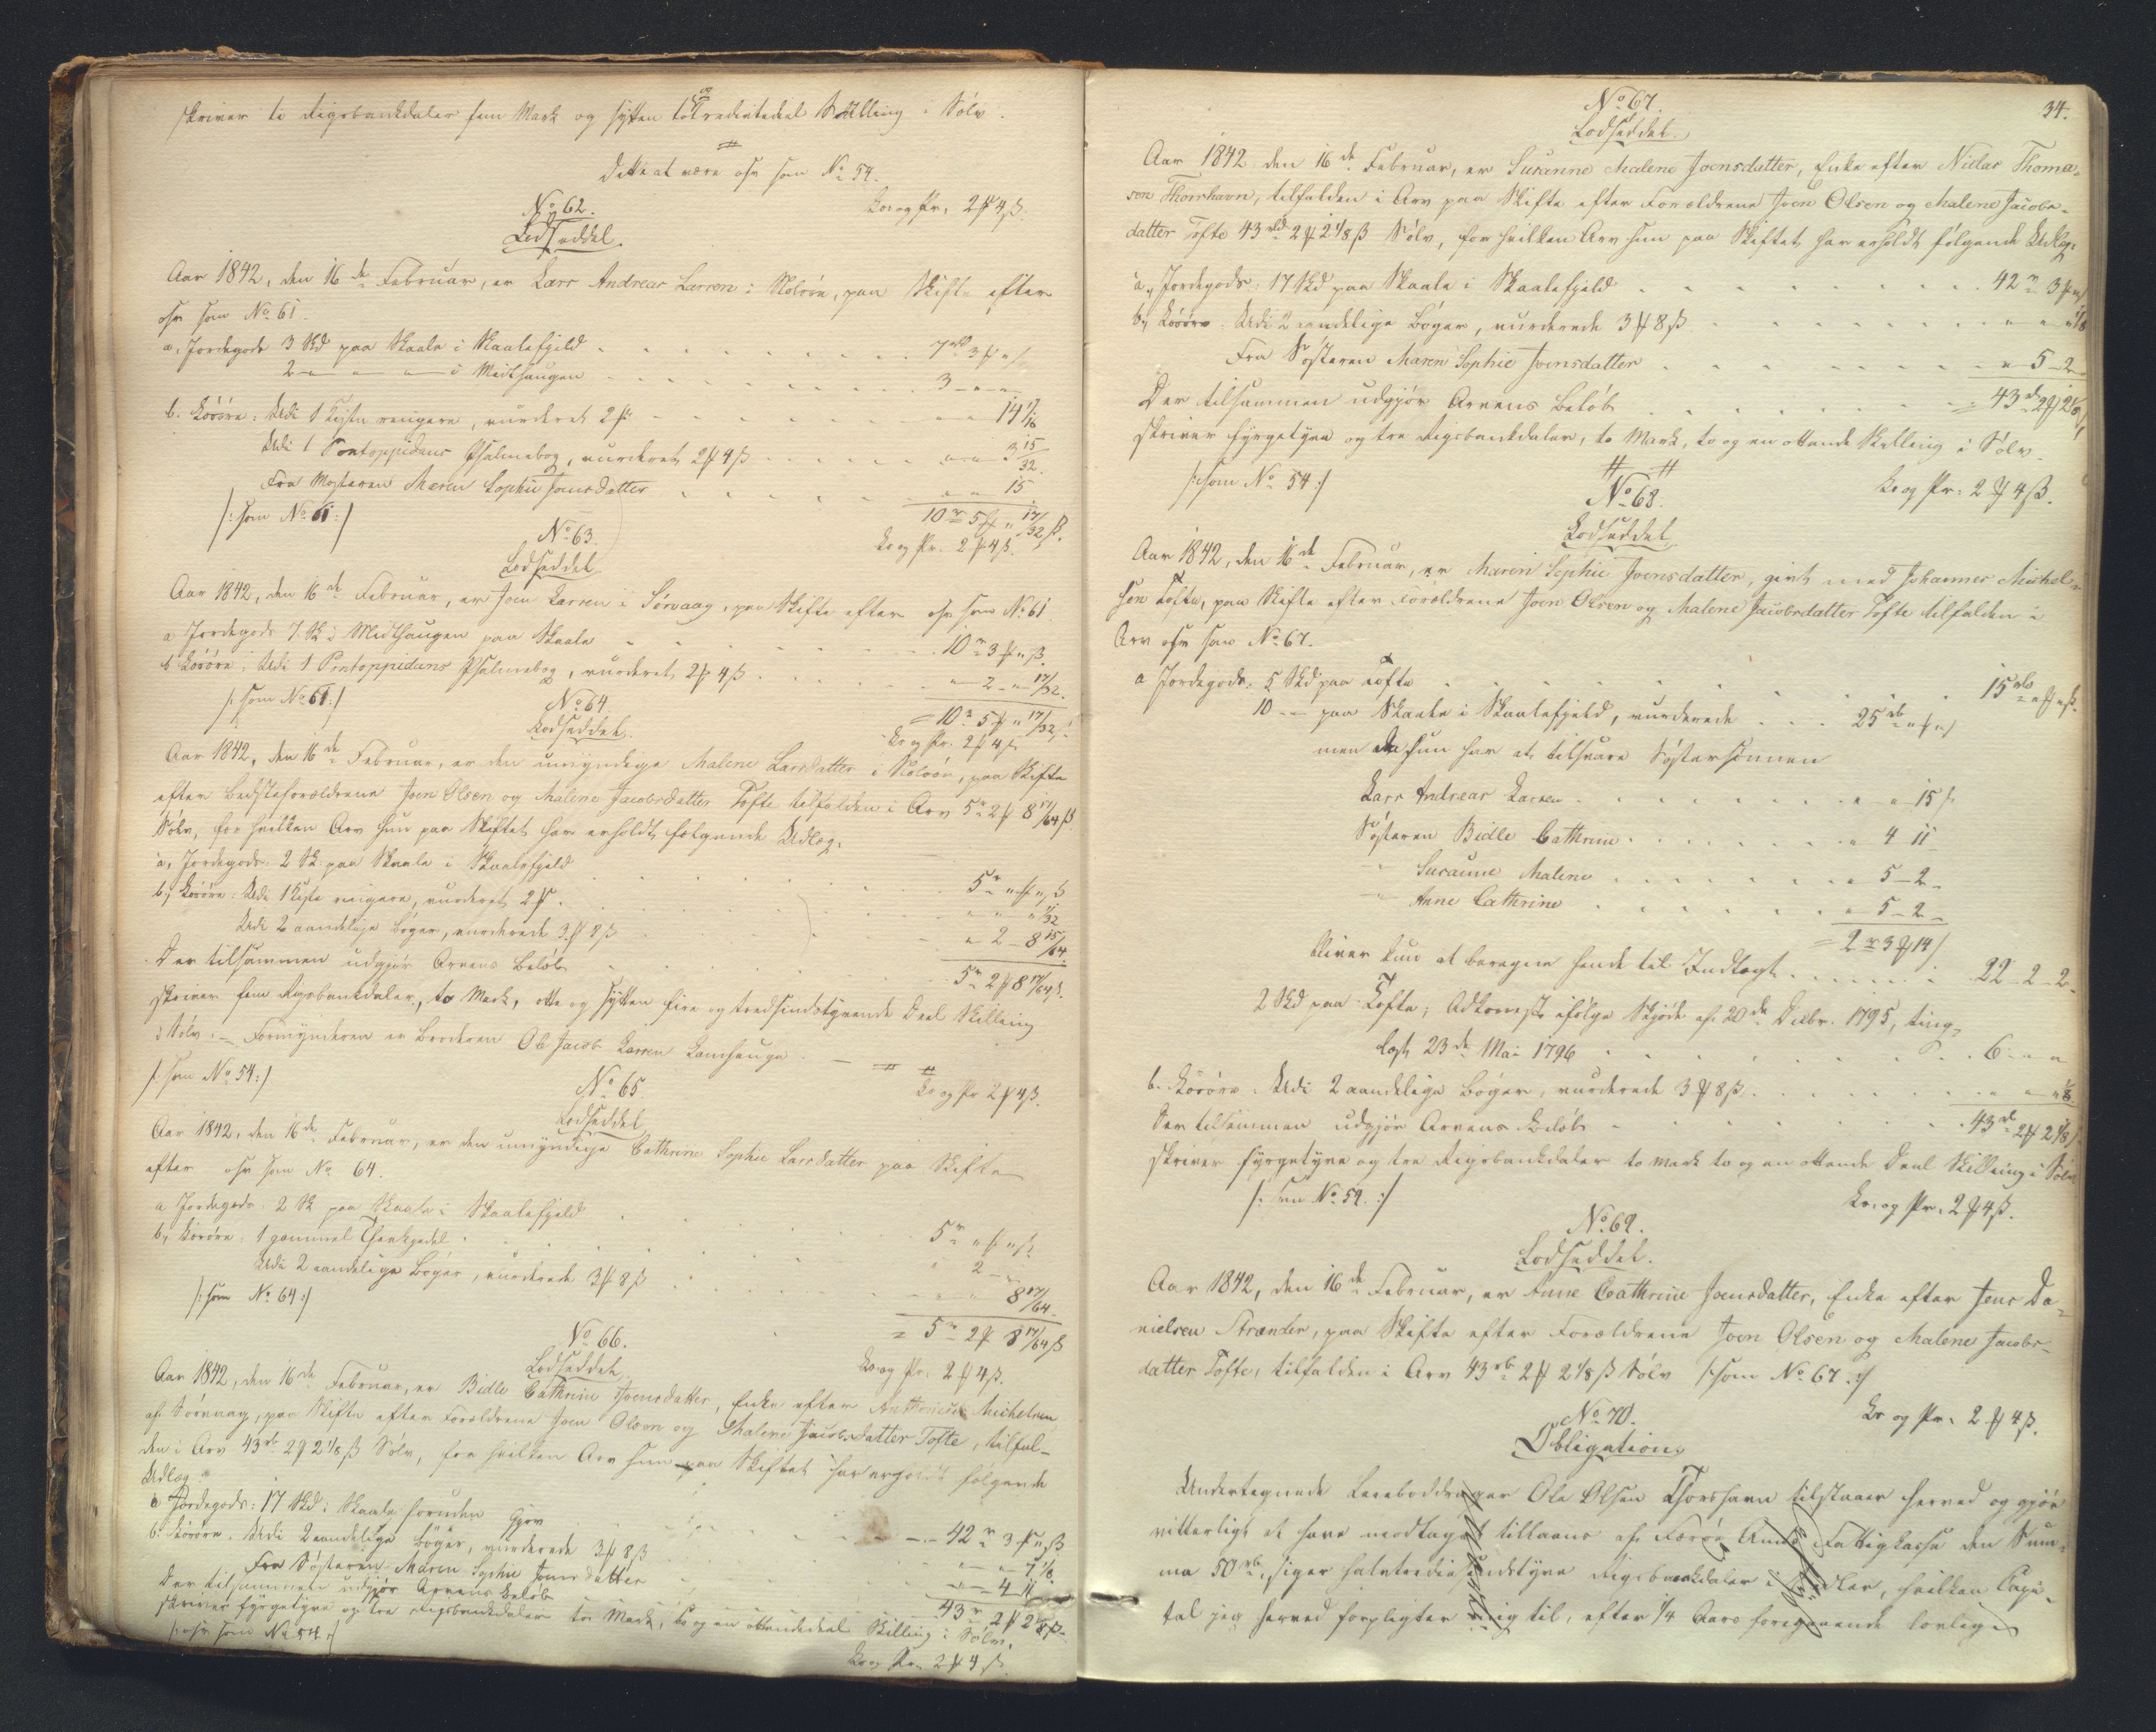 skriver ti Rigsbankdaler fem Mark og sytten totredivtedeel Skilling i Sølv.
dette at være osv som No 54.
No 62. Lev og Pr. 2 ₰ 4 ß.
Lodseddel.
Aar 1842, den 16de Februar, er Lars Andreas Larsen i Kolvøn, paa Skifte efter
osv som No 61.
a, Jordegods 3 Skd paa Skaale i Skaalefjeld 7 rbd 3 ₰ " ß
2 — " — i Midthaugen 3 — " — "
b. Løsøre: Udi 1 Kiste ringere, vurderet 2 ₰ 14 1/16
Udi 1 Pontoppidans Psalmebog, vurderet 2 ₰ 4 ß " — " — 3 15/32.
Fra Mosteren Maren Sophie Joensdatter " " 15
/: som No 61 :/ 10 r 5 ₰ " 17/32 ß.
No 63. Lev og Pr. 2 ₰ 4 ß.
Lodseddel
Aar 1842, den 16de Februar, er Joen Larsen i Sørvaag, paa Skifte efter osv som No 61
a Jordegods 7 Sk i Midthaugen paa Skaale 10 r 3 ₰ " ß.
b Løsøre: Udi 1 Pontoppidans Psalmebog, vurderet 2 ₰ 4 ß " — 2 — " 17/32.
/: som No 61 :/ = 10 r 5 ₰ " 17/32 ß
No 64. Lev og Pr. 2 ₰ 4 ß
Lodseddel.
Aar 1842, den 16de Februar, er den umyndige Malene Larsdatter i Kolvøn, paa Skifte
efter Bedsteforældrene Joen Olsen og Malene Jacobsdatter Tofte tilfalden i Arv 5 r 2 ₰ 8 17/64 ß
Sølv, for hvilken Arv hun paa Skiftet har erholdt følgende Udlæg.
a, Jordegods: 2 Sk paa Skaale i Skaalefjeld 5 r " ₰ " ß
b, Løsøre: Udi 1 Kiste ringere, vurderet 2 ₰ " " " 1/32
Udi 2 aandelige Bøger, vurderede 3 ₰ 8 ß " 2 — 8 15/64.
Der tilsammen udgjør Arvens Beløb 5 r 2 ₰ 8 17/64 ß.
skriver fem Rigsbankdaler, to Mark, otte og sytten fire og tredsindstyvende Deel Skilling
i Sølv. — Formynderen er Broderen Ole Jacob Larsen Lamhauge.
/: som No 54 :/
No 65 Lev og Pr 2 ₰ 4 ß.
Lodseddel
Aar 1842, den 16de Februar, er den umyndige Cathrine Sophie Larsdatter paa Skifte
efter osv som No 64.
a Jordegods: 2 Sk paa Skaale i Skaalefjeld 5 r " ₰ " ß
b, Løsøre: 1 gammel " 2 —
Udi 2 aandelige Bøger, vurderede 3 ₰ 8 ß " — " 8 17/64
/: som No 64 :/ = 5 r 2 ₰ 8 17/64 ß
No 66. Lev og Pr: 2 ₰ 4 ß.
Lodseddel
Aar 1842, den 16de Februar, er Bidle Cathrine Joensdatter, Enke efter Michelsen
af Sørvaag, paa Skifte efter Forældrene Joen Olsen og Malene Jacobsdatter Tofte, tilfal-
den i Arv 43 rb 2 ₰ 2 1/8 ß Sølv, for hvilken Arv hun paa Skiftet har erholdt følgende
Udlæg.
a Jordegods: 17 Skd i Skaale foruden Gjov 42 r 3 ₰ " ß
b. Løsøre. Udi 2 aandelige Bøger, vurderede 3 ₰ 8 ß " — " — 7 1/8
Fra Søsteren Maren Sophie Joensdatter " — 4 11
Der tilsammen udgjør Arvens Beløb 43 r 2 ₰ 2 1/8 ß
skriver fyrgetyve og tre Rigsbankdaler to Mark, to og en ottendedeel Skilling i Sølv.
/: osv som No 54 :/
Lev og Pr. 2 ₰ 4 ß.
34.
No 67.
Lodseddel.
Aar 1842 den 16de Februar, er Susanne Malene Joensdatter, Enke efter Niclas Thoma-
sen Thorshavn, tilfalden i Arv paa Skifte efter Forældrene Joen Olsen og Malene Jacobs-
datter Tofte 43 rbd 2 ₰ 2 1/8 ß Sølv, for hvilken Arv hun paa Skiftet har erholdt følgende Udlæg:
a, Jordegods: 17 Skd paa Skaale i Skaalefjeld 42 r 3 ₰ " ß
b, Løsøre: Udi 2 aandelige Bøger, vurderede 3 ₰ 8 ß " " " 1/8
Fra Søsteren Maren Sophie Joensdatter " 5 — 2
Der tilsammen udgjør Arvens Beløb = 43 rd 2 ₰ 2 1/8 ß
skriver fyrgetyve og tre Rigsbankdaler, to Mark, to og en ottende Skilling i Sølv.
/: som No 54 :/ Lev og Pr: 2 ₰ 4 ß.
No 68.
Lodseddel
Aar 1842, den 16de Februar, er Maren Sophie Joensdatter, givt med Johannes Michel-
sen Tofte, paa Skifte efter Forældrene Joen Olsen og Malene Jacobsdatter Tofte tilfalden i
Arv osv som No 67.
a Jordegods: 5 Skd paa Tofte 15 rb " ₰ " ß.
10 — paa Skaale i Skaalefjeld, vurderede 25 rb " ₰ " ß
men da hun har at tilsvare Søstersønnen
Lars Andreas Larsen " " 15 ß
Søsteren Bidle Cathrine " 4 11
" Susanne Malene " 5 — 2 —
" Anne Cathrine " 5 — 2 —
= 2 r 3 ₰ 14 ß
bliver kun at beregne hende til Indtægt 22 — 2 — 2.
2 Skd paa Tofte; Adkomst ifølge Skjøde af 20de Decbr. 1795, ting-
læst 23de Mai 1796 6 " "
b. Løsøre. Udi 2 aandelige Bøger, vurderede 3 ₰ 8 ß " — " 1/8.
Der tilsammen udgjør Arvens Beløb 43 rd 2 ₰ 2 1/8 ß
skriver fyrgetyve og tre Rigsbankdaler to Mark to og en ottende Deel Skilling i Sølv
/: som No 54. :/ Lev og Pr: 2 ₰ 4 ß.
No 69.
Lodseddel.
Aar 1842, den 16de Februar, er Anne Cathrine Joensdatter, Enke efter Jens Da-
nielsen Strænder, paa Skifte efter Forældrene Joen Olsen og Malene Jacobs-
datter Tofte, tilfalden i Arv 43 rb 2 ₰ 2 1/8 ß Sølv /: som No 67. :/
No 70. Lev og Pr: 2 ₰ 4 ß.
Obligation.
Undertegnede Ole Olsen Thorshavn tilstaaer herved og gjør
vitterligt at have modtaget tillaans af Færøe Amts Fattigkasse den Sum-
ma 50 rb, siger halvtredsindstyve Rigsbankdaler i Sedler, hvilken Capi-
tal jeg herved forpligter mig til, efter 1/4 Aars foregaaende lovlig